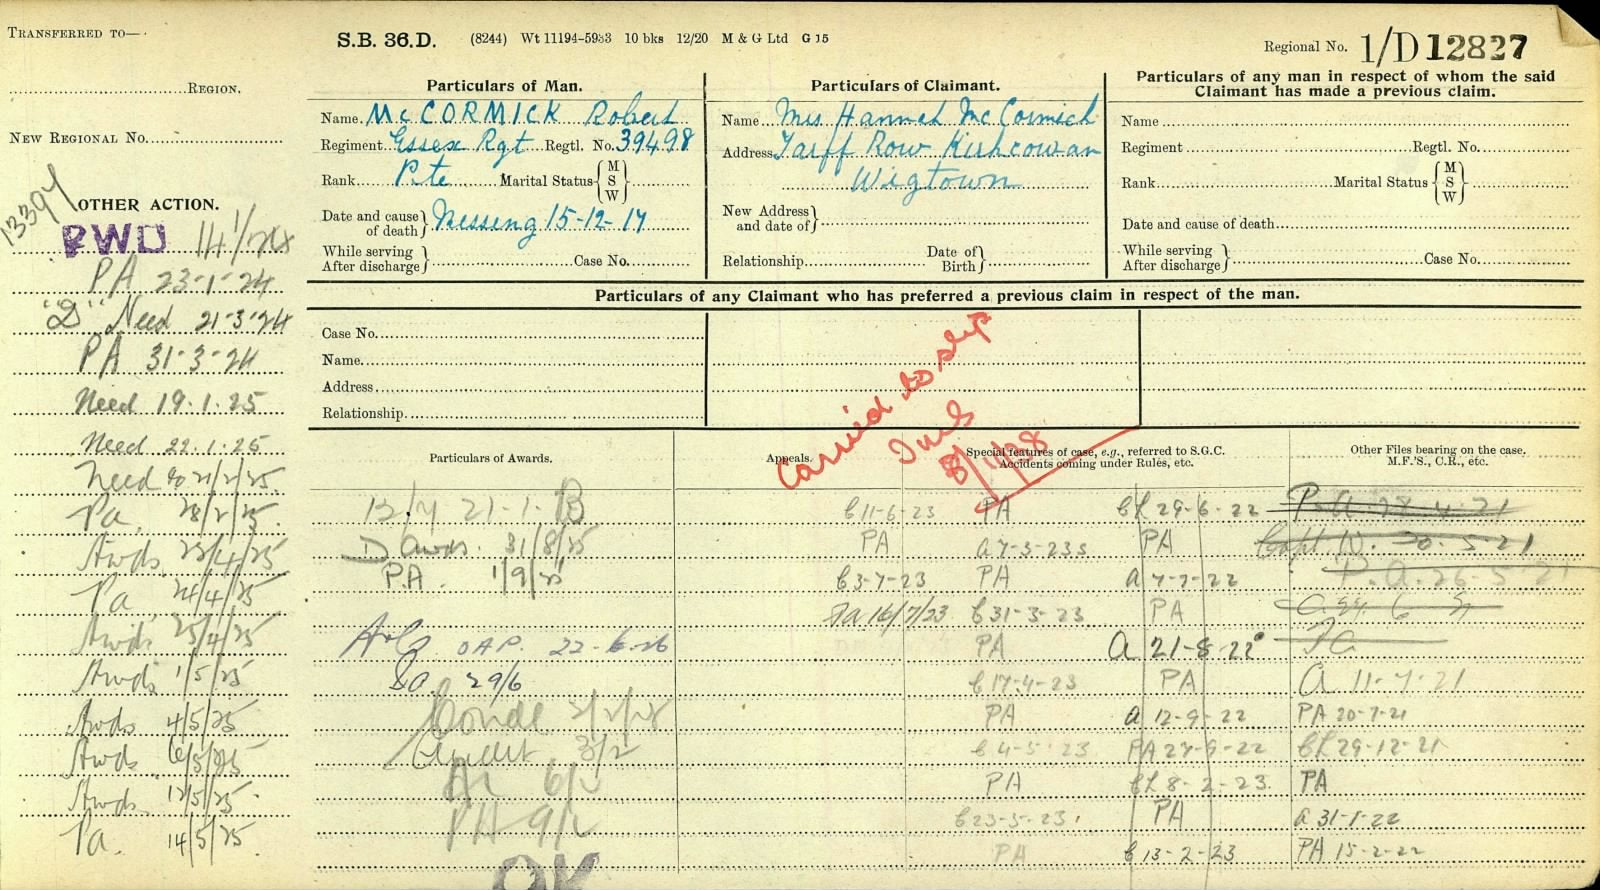 TRANSFERRED TO—
REGION.
NEW REGIONAL No.
13394
OTHER ACTION.
RWD 14/1/24
PA 23-1-24
"D" Need 21-3-24
PA 31-3-24
Need 19.1.25
Need 22.1.25
Need 21/2/25
Pa. 28/2/25
Awds 23/4/25
Pa 24/4/25
Awds 25/4/25
Awds 1/5/25
Awds 4/5/25
Awds 6/5/25
Awds 12/5/25
Pa. 14/5/25
S.B. 36.D. (8244) Wt 11194-5933 10 bks 12/20 M & G Ltd G 15
Regional No. 1/D12827
Particulars of Man.
Name McCORMICK Robert
Regiment Essex Rgt Regtl. No. 39498
Rank Pte Marital Status { M S W }
Date and cause of death } Missing 15-12-17
While serving
After discharge } Case No.
Particulars of Claimant.
Name Mrs Hannah McCormick
Address Tarff Row Kirkcowan
Wigtown
New Address and date of }
Relationship Date of Birth }
Particulars of any man in respect of whom the said
Claimant has made a previous claim.
Name
Regiment Regtl. No.
Rank Marital Status { M S W }
Date and cause of death
While serving
After discharge } Case No.
Particulars of any Claimant who has preferred a previous claim in respect of the man.
Case No.
Name.
Address
Relationship.
Carried to slip
Particulars of Awards.
21.1.
D Awds. 31/8/25
P.A. 1/9/25
OAP. 22-6-26
29/6
3/2
6/2
PA 9/2
Appeals.
Special features of case, e.g., referred to S.G.C.
Accidents coming under Rules, etc.
11-6-23 PA 29-6-22
PA a 7-3-23 PA
3-7-23 PA a 7-7-22
16/7/23 31-3-23 PA
PA A 21-8-22
17-4-23 PA
PA a 12-9-22
4-5-23 PA 27-9-22
PA 8-2-23
23-5-23 PA
PA 13-2-23
Other Files bearing on the case.
M.F.'S., C.R., etc.
P.A. 28.4.21
20.5.21
P.A. 26-5-21
Pa
a 11-7-21
PA 20-7-21
29-12-21
PA
a 31-1-22
PA 15-2-22